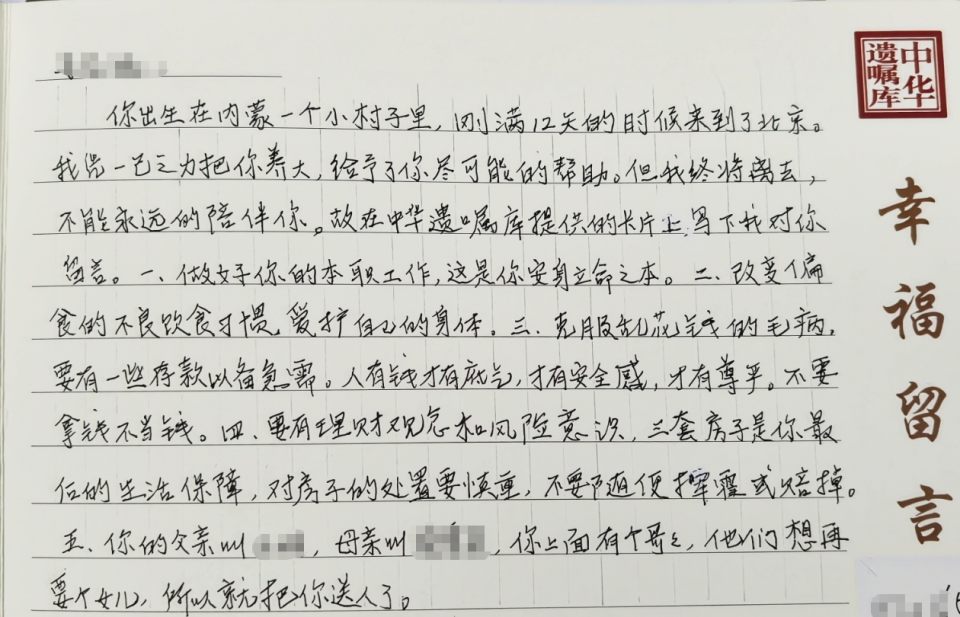 你出生在内蒙一个小村子里，刚满12天的时候来到了北京。
我凭一己之力把你养大，给予了你尽可能的帮助。但我终将离去，
不能永远的陪伴你。故在中华遗嘱库提供的卡片上，写下我对你
留言。一、做好你的本职工作，这是你安身立命之本。二、改变偏
食的不良饮食习惯，爱护自己的身体。三、克服乱花钱的毛病，
要有一些存款以备急需。人有钱才有底气，才有安全感，才有尊严。不要
拿钱不当钱。四、要有理财观念和风险意识，三套房子是你最
后的生活保障，对房子的处置要慎重，不要随便挥霍或赔掉。
五、你的父亲叫，母亲叫，你上面有个哥哥，他们想再
要个女儿，所以就把你送人了。
中华遗嘱库
幸福留言